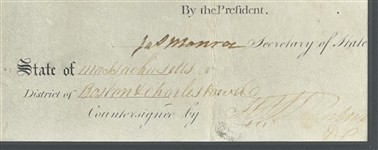 By the President.
Jas Monroe Secretary of State
State of Massachusetts
District of Boston & Charlestown
Countersigned by